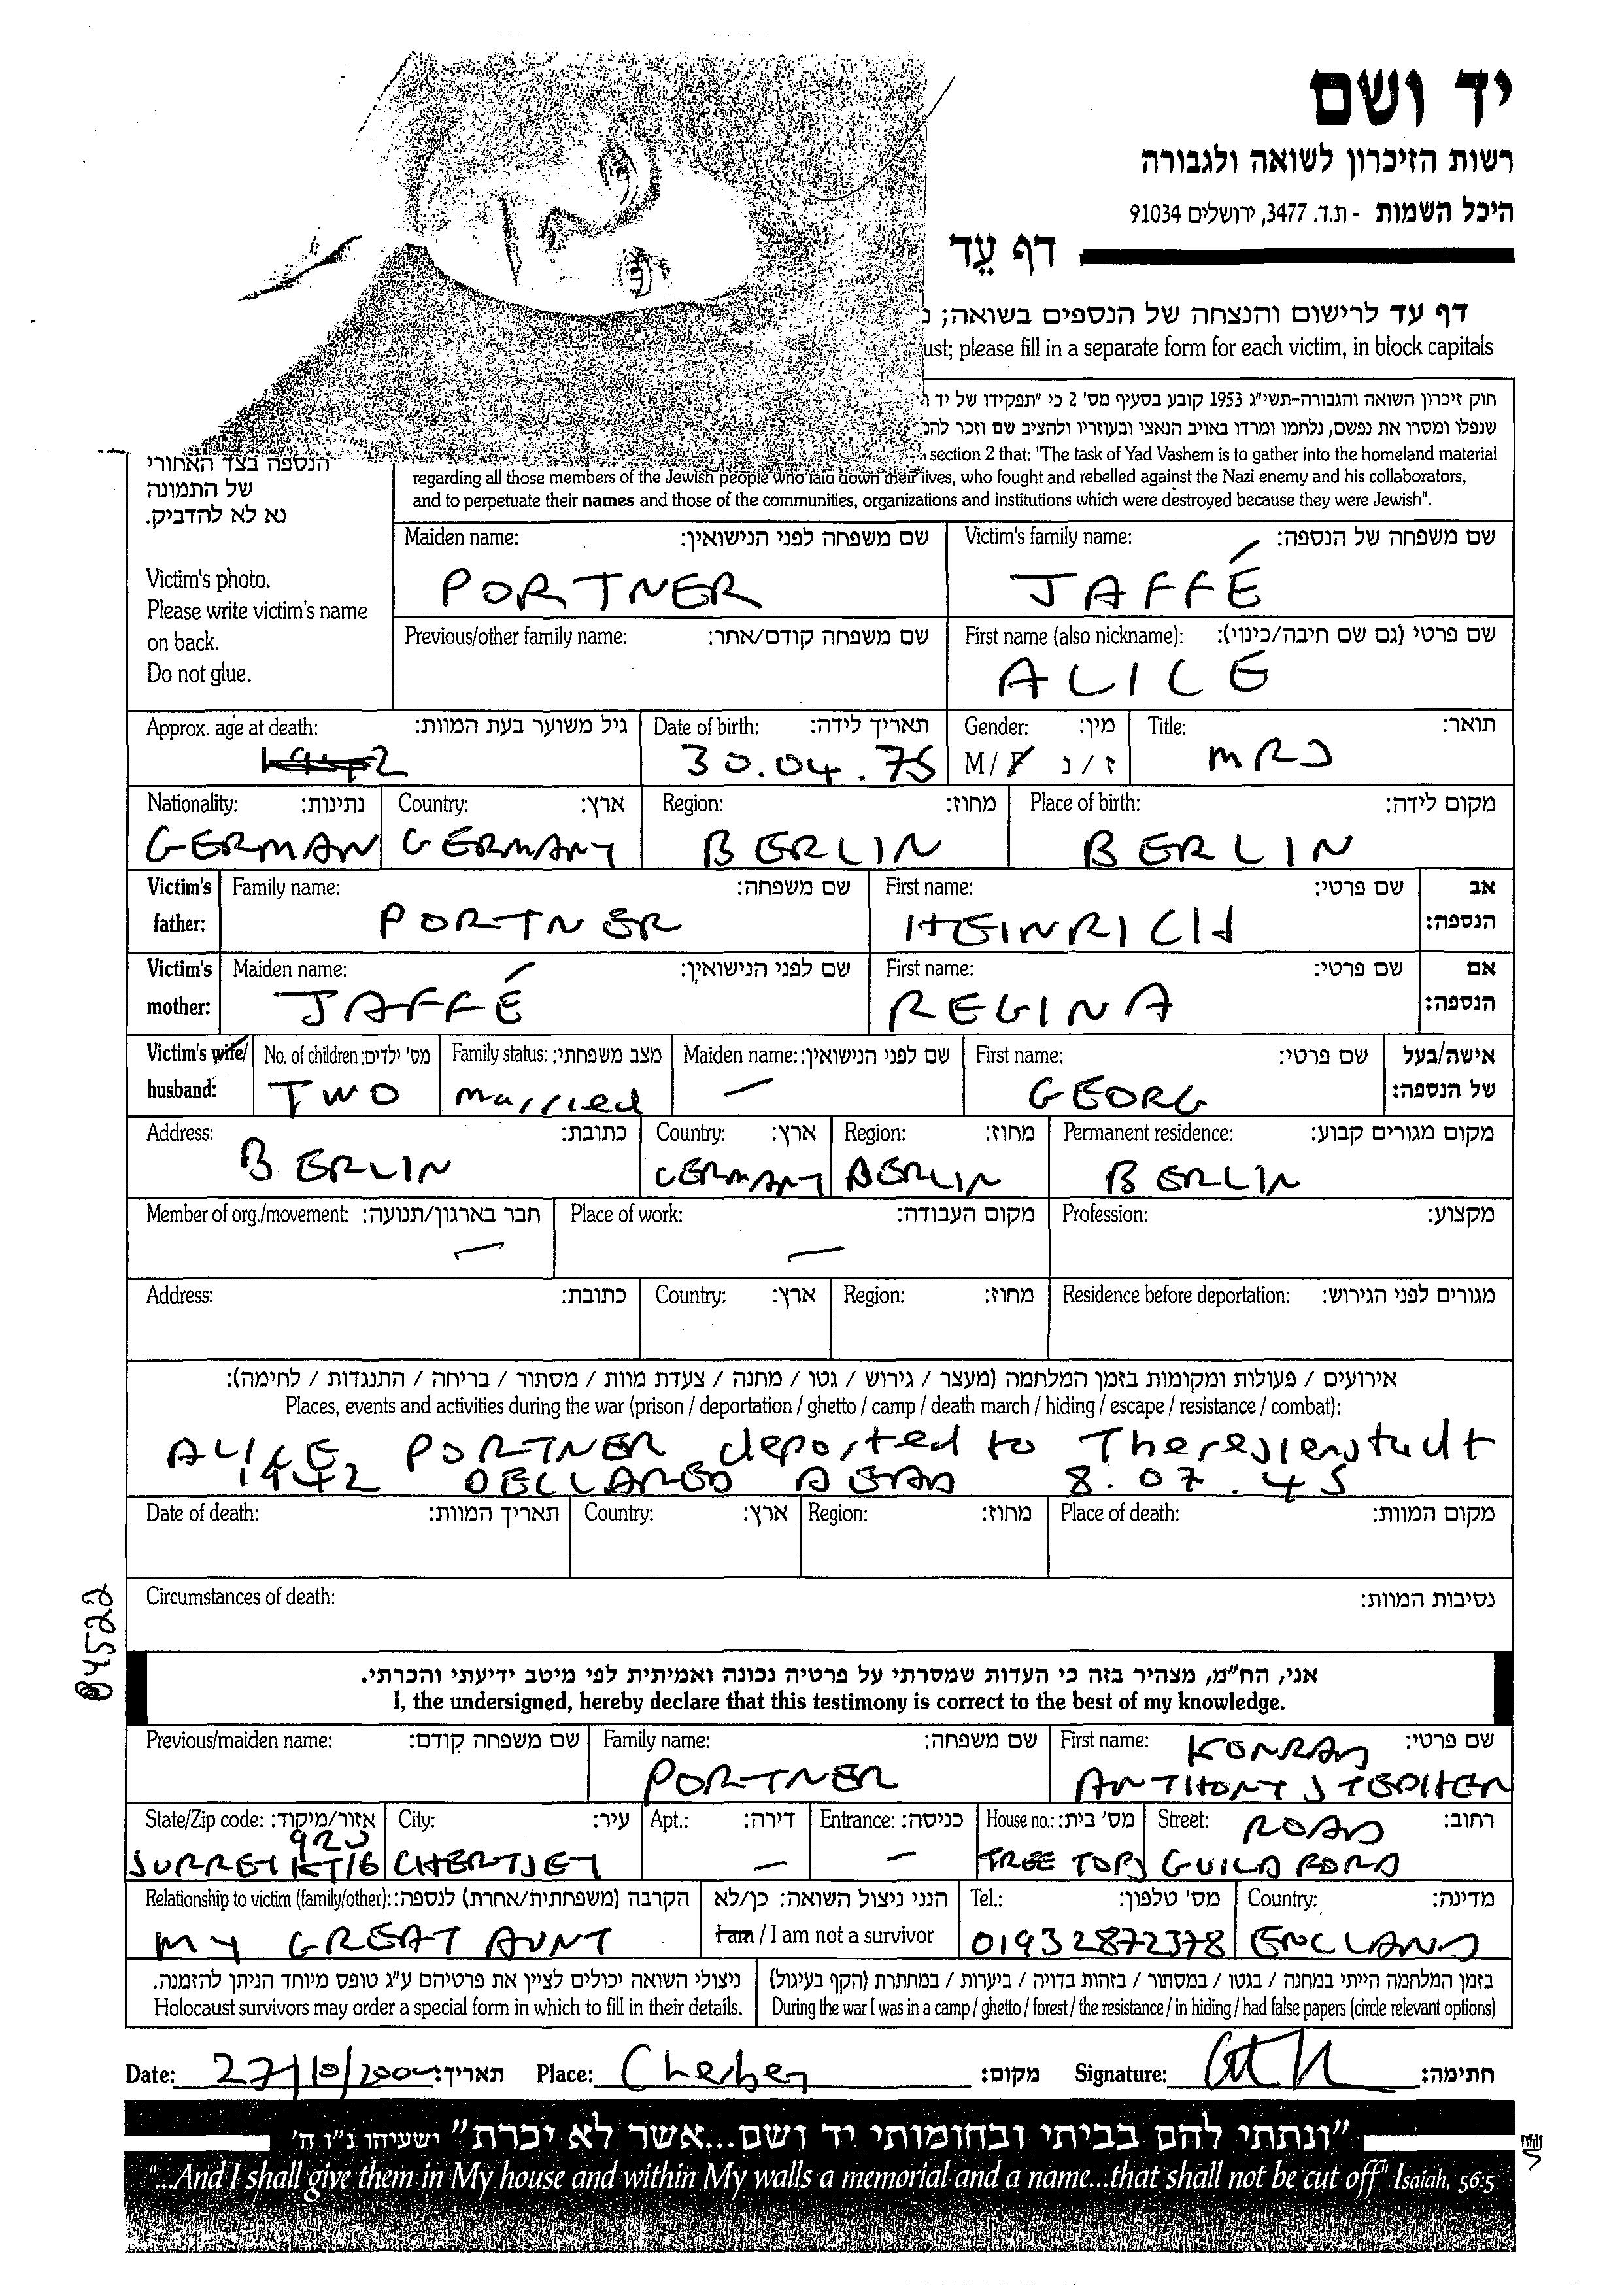 יד ושם
רשות הזיכרון לשואה ולגבורה
היכל השמות - ת.ד. 3477, ירושלים 91034
דף עֵד
דף עד לרישום והנצחה של הנספים בשואה;
ust; please fill in a separate form for each victim, in block capitals
חוק זיכרון השואה והגבורה-תשי״ג 1953 קובע בסעיף מס' 2 כי ״תפקידו של יד
שנפלו ומסרו את נפשם, נלחמו ומרדו באויב הנאצי ובעוזריו ולהציב שם וזכר
section 2 that: "The task of Yad Vashem is to gather into the homeland material
regarding all those members of the Jewish people who laid down their lives, who fought and rebelled against the Nazi enemy and his collaborators,
and to perpetuate their names and those of the communities, organizations and institutions which were destroyed because they were Jewish".
הנספה בצד האחורי
של התמונה
נא לא להדביק.
Victim's photo.
Please write victim's name
on back.
Do not glue.
Maiden name: שם משפחה לפני הנישואין: Victim's family name: שם משפחה של הנספה:
PORTNER JAFFÉ
Previous/other family name: שם משפחה קודם/אחר: First name (also nickname): שם פרטי (גם שם חיבה/כינוי):
ALICE
Approx. age at death: גיל משוער בעת המוות: Date of birth: תאריך לידה: Gender: מין: Title: תואר:
30.04.75 M/F ז/נ MRS
Nationality: נתינות: Country: ארץ: Region: מחוז: Place of birth: מקום לידה:
GERMAN GERMANY BERLIN BERLIN
Victim's father: Family name: שם משפחה: First name: שם פרטי: אב הנספה:
PORTNER HEINRICH
Victim's mother: Maiden name: שם לפני הנישואין: First name: שם פרטי: אם הנספה:
JAFFÉ REGINA
Victim's wife/husband: No. of children: מס' ילדים: Family status: מצב משפחתי: Maiden name: שם לפני הנישואין: First name: שם פרטי: אישה/בעל של הנספה:
TWO married — GEORG
Address: כתובת: Country: ארץ: Region: מחוז: Permanent residence: מקום מגורים קבוע:
BERLIN GERMANY BERLIN BERLIN
Member of org./movement: חבר בארגון/תנועה: Place of work: מקום העבודה: Profession: מקצוע:
— —
Address: כתובת: Country: ארץ: Region: מחוז: Residence before deportation: מגורים לפני הגירוש:
אירועים / פעולות ומקומות בזמן המלחמה (מעצר / גירוש / גטו / מחנה / צעדת מוות / מסתור / בריחה / התנגדות / לחימה):
Places, events and activities during the war (prison / deportation / ghetto / camp / death march / hiding / escape / resistance / combat):
ALICE PORTNER deported to Theresienstadt
1942 DECLARED DEAD 8.07.45
Date of death: תאריך המוות: Country: ארץ: Region: מחוז: Place of death: מקום המוות:
Circumstances of death: נסיבות המוות:
84522
אני, הח״מ, מצהיר בזה כי העדות שמסרתי על פרטיה נכונה ואמיתית לפי מיטב ידיעתי והכרתי.
I, the undersigned, hereby declare that this testimony is correct to the best of my knowledge.
Previous/maiden name: שם משפחה קודם: Family name: שם משפחה: First name: שם פרטי:
KONRAD
PORTNER ANTHONY STEPHEN
State/Zip code: אזור/מיקוד: City: עיר: Apt.: דירה: Entrance: כניסה: House no.: מס' בית: Street: רחוב:
9RU ROAD
SURREY KT16 CHERTSEY — — TREE TOPS GUILDFORD
Relationship to victim (family/other): הקרבה (משפחתית/אחרת) לנספה: הנני ניצול השואה: כן/לא Tel.: מס' טלפון: Country: מדינה:
MY GREAT AUNT I am / I am not a survivor 01932872378 ENGLAND
ניצולי השואה יכולים לציין את פרטיהם ע״ג טופס מיוחד הניתן להזמנה. בזמן המלחמה הייתי במחנה / בגטו / במסתור / בזהות בדויה / ביערות / במחתרת (הקף בעיגול)
Holocaust survivors may order a special form in which to fill in their details. During the war I was in a camp / ghetto / forest / the resistance / in hiding / had false papers (circle relevant options)
Date: תאריך: Place: Chertsey מקום: Signature: חתימה:
״ונתתי להם בביתי ובחומותי יד ושם...אשר לא יכרת״ ישעיהו נ״ו ה'
"...And I shall give them in My house and within My walls a memorial and a name...that shall not be cut off" Isaiah, 56:5